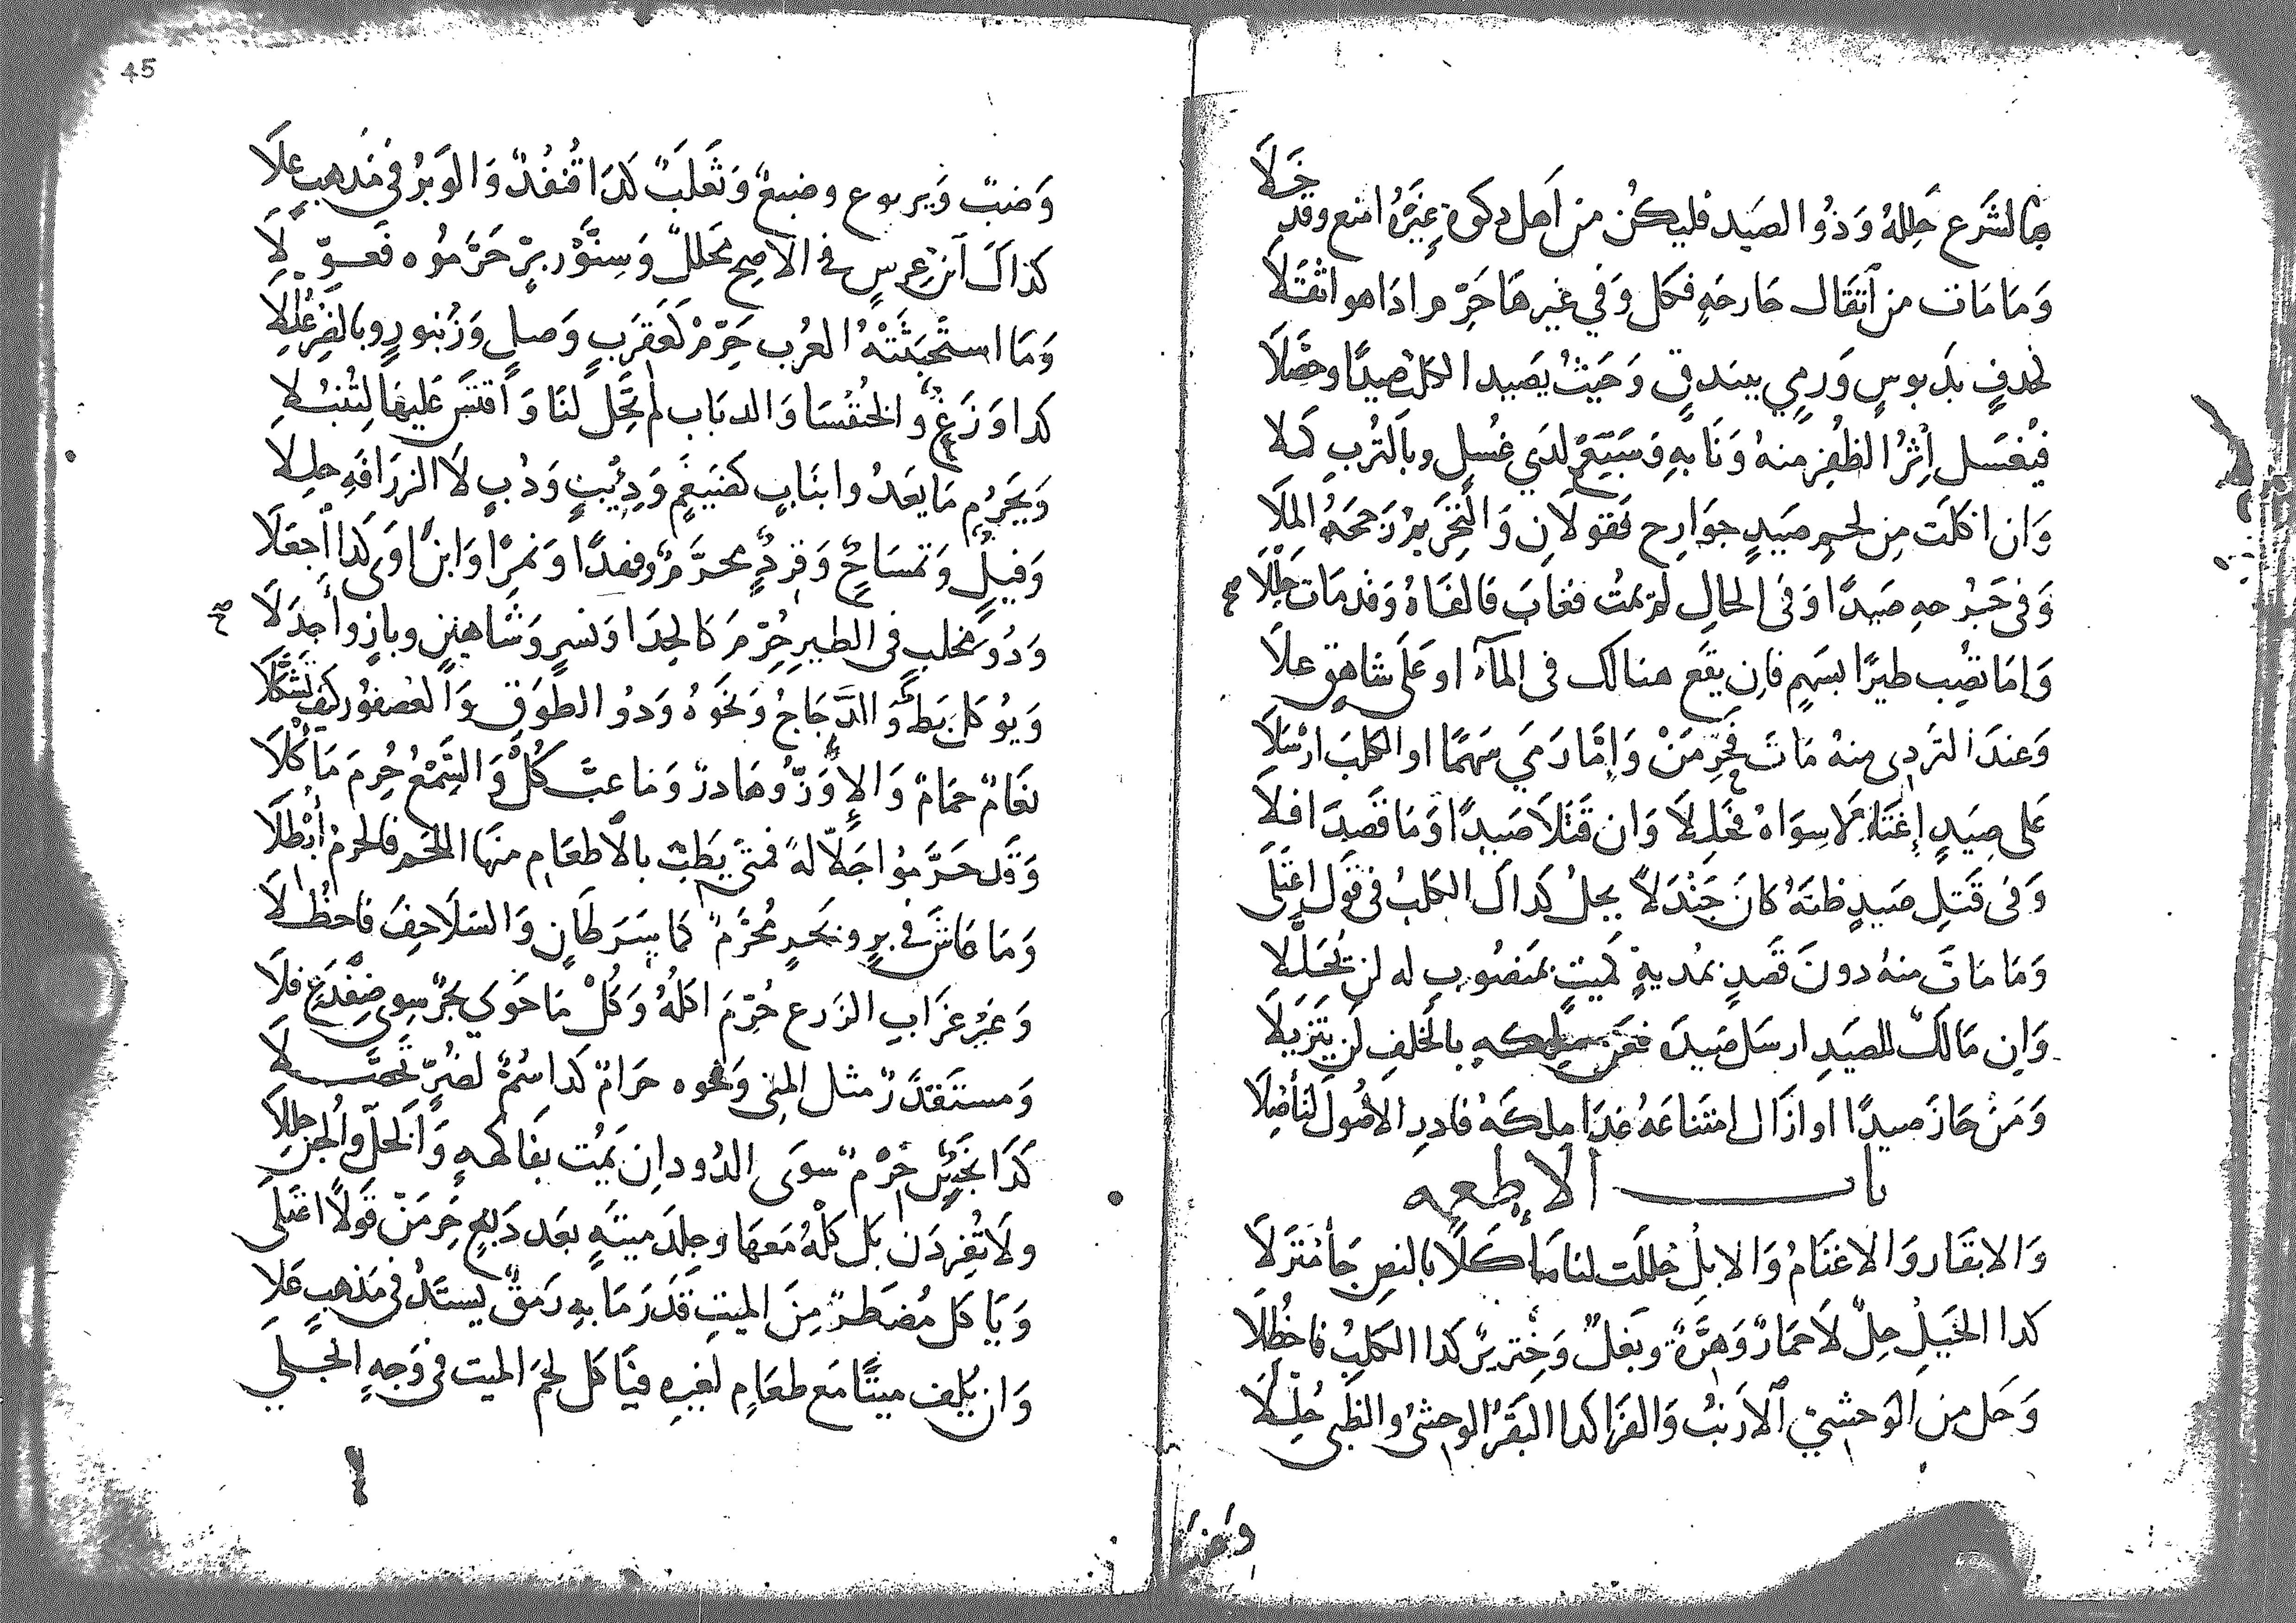 بما الشرع حلله وذو الصيد فليكن من اهل دكوة غيره امنع وقد خلا
وما مات من اثقال جارحه فكل وفي غيرها حرم ادا هو اثقلا
لحدف بدبوس ورمي ببندق وحيث يصيد الكل صيدا وحصلا
فيغسل اثر الظفر منه ونابه وسبع لدي غسل وبالترب كملا
وان اكلت من لحم صيد جوارح فقولان والتخريم رجحه الملا
وفي جرحه صيدا وفي الحال لم يمت فغاب فالفاه وقد مات حللا
صح
واما تصب طيرا بسهم فان يقع هنالك في المآء او على شاهق علا
وعند التردى منه مات فحرمن واما رمي سهما او الكلب ارسلا
على صيد إغتاله سواه فحللا وان قتلا صيدا وما قصدا فلا
وفى قتل صيد ظنه كان جندلا يحل كداك الكلب في قول اعتلى
وما مات منه دون قصد بمدية كميت بمنصوب له لن يحللا
وان مالك للصيد ارسل صيده فعن ملكه بالخلف لن يتزيلا
ومن حاز صيدا او ازال امتناعه غدا ملكه فادر الأصول لتأصلا
باب الإطعمه
والابقار والاغنام والابل حللت لنا مأكلا بالنص جا منزلا
كدا الخيل حل لا حمار وهرة وبغل وخنزير كدا الكلب فاحظلا
وحل من الوحشي الارنب والفرا كدا البقر الوحشى والظبى حللا
وضب
45
وضب ويربوع وضبع وثعلب كدا قنفد والوبر في مذهب علا
كذاك آبن عرس في الاصح محلل وسنور بر حرموه فعولا
وما استخبثته العرب حرم كعقرب وصل وزنبور وبالفر عللا
كدا وزغ والخنفسا والدباب لم تحل لنا واقتس عليها لتنبلا
ويحرم ما يعدوا بناب كضيغم وديب ودب لا الزرافه حللا
وفيل وتمساح وقرد محرم وفهدا ونمرا وابن اوى كدا اجعلا
ودو مخلب في الطير حرم كالحدا ونسر وشاهين وباز واجدلا
صح
ويوكل بط والدجاج ونحوه ودو الطوق والعصفور كيف تشكلا
نعام حمام والإوز وهادر وما عب كل والسمع حرم مأكلا
وقد حرموا جلالة فمتى يطب بالاطعام منها اللحم فالحرم أبطلا
وما عاش في بر وبحر محرم كما سرطان والسلاحف فاحظلا
وغير غراب الزرع حرم اكله وكل ما حوي بحر سوى ضفدع فلا
ومستقدر مثل المنى ونحوه حرام كدا سم لضر تحصلا
كدا نجس حرم سوى الدود ان يمت بفاكهه والخل والجبن حللا
ولا تفردن بل كله معها وجلد ميتة بعد دبغ حرمن قولا اعتلى
وياكل مضطر من الميت قدر ما به رمق يستد في مذهب علا
وان يلف ميتا مع طعام لغيره فياكل لحم الميت في وجه انجلي